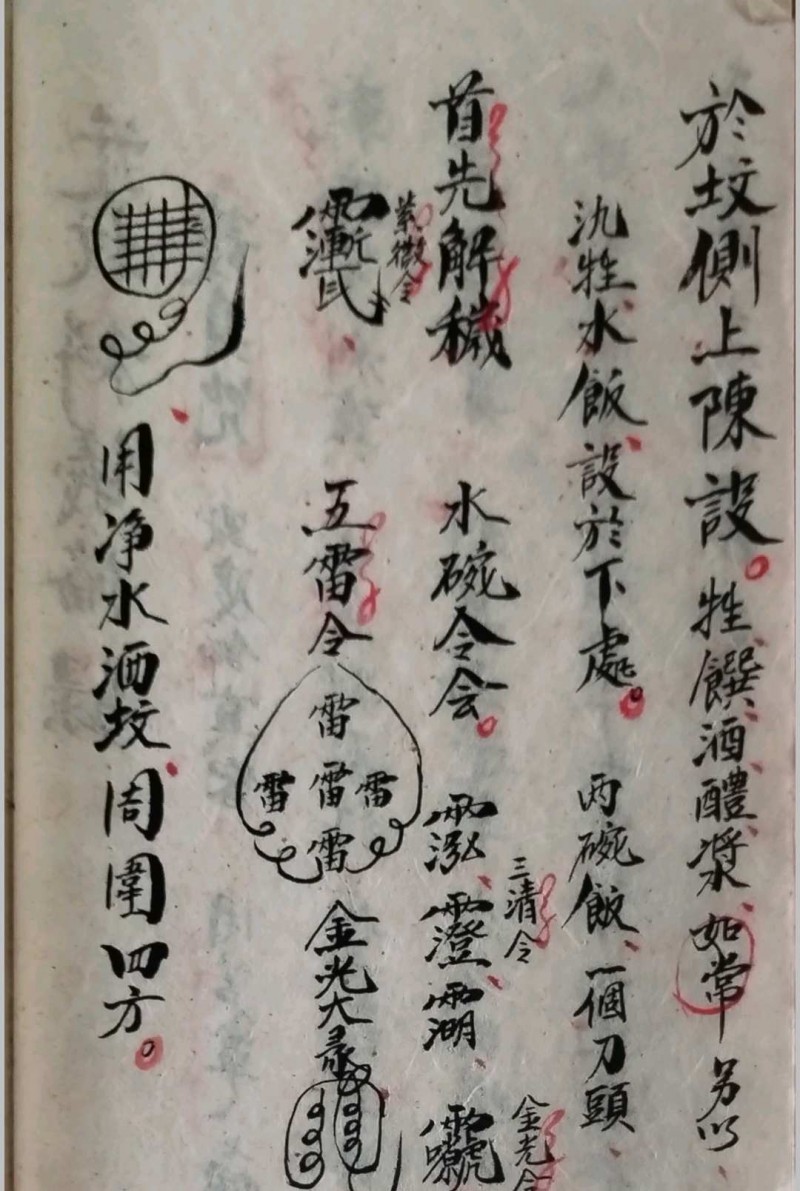 於坟側上陳設。牲饌酒醴漿如常另以
氿牲水飯設於下處。两碗飯、一個刀頭
首先解穢 水碗令会。
三清令
金光令
紫微令
五雷令 雷 雷 雷 雷 雷 金光大
用净水洒坟、周圍四方。